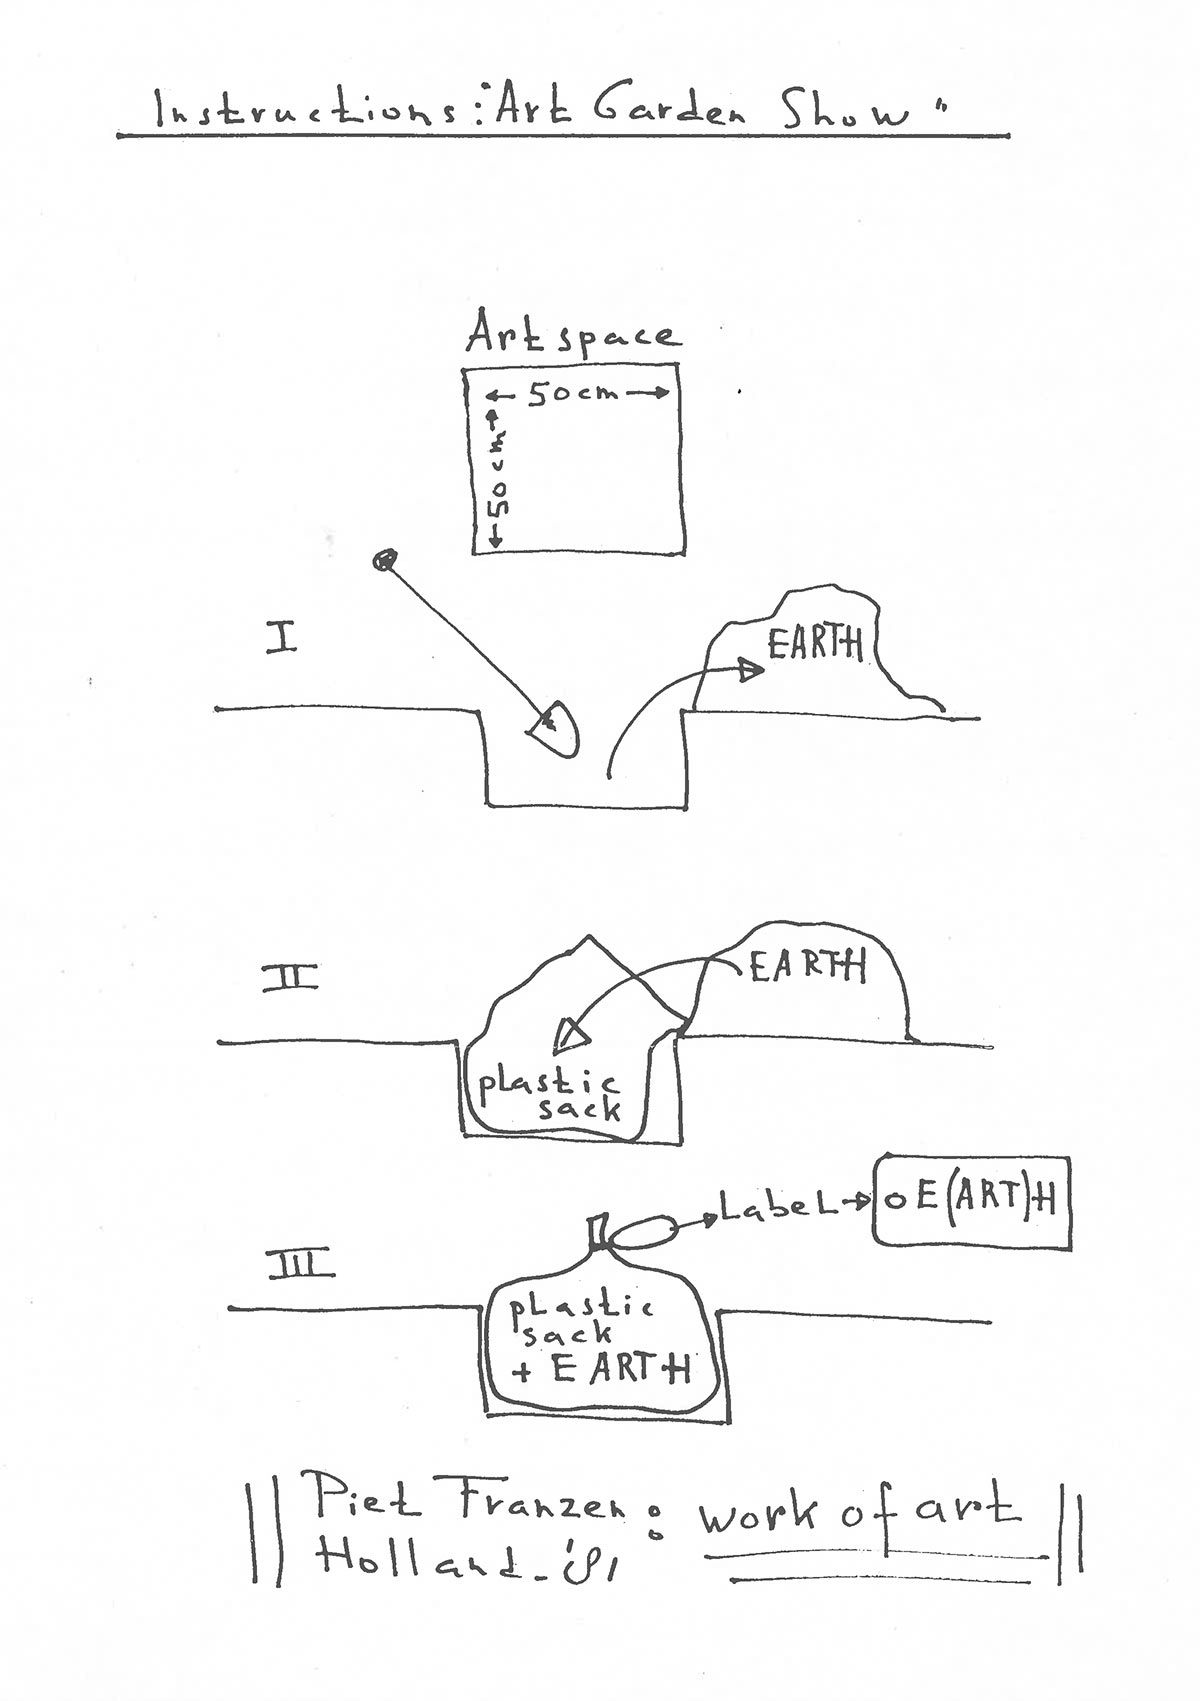 Instructions: "Art Garden Show"
Art space
50cm
50cm
I
EARTH
II
EARTH
plastic
sack
III
Label
o E(ART)H
plastic
sack
+ EARTH
Piet Franzen: work of art
Holland - '81